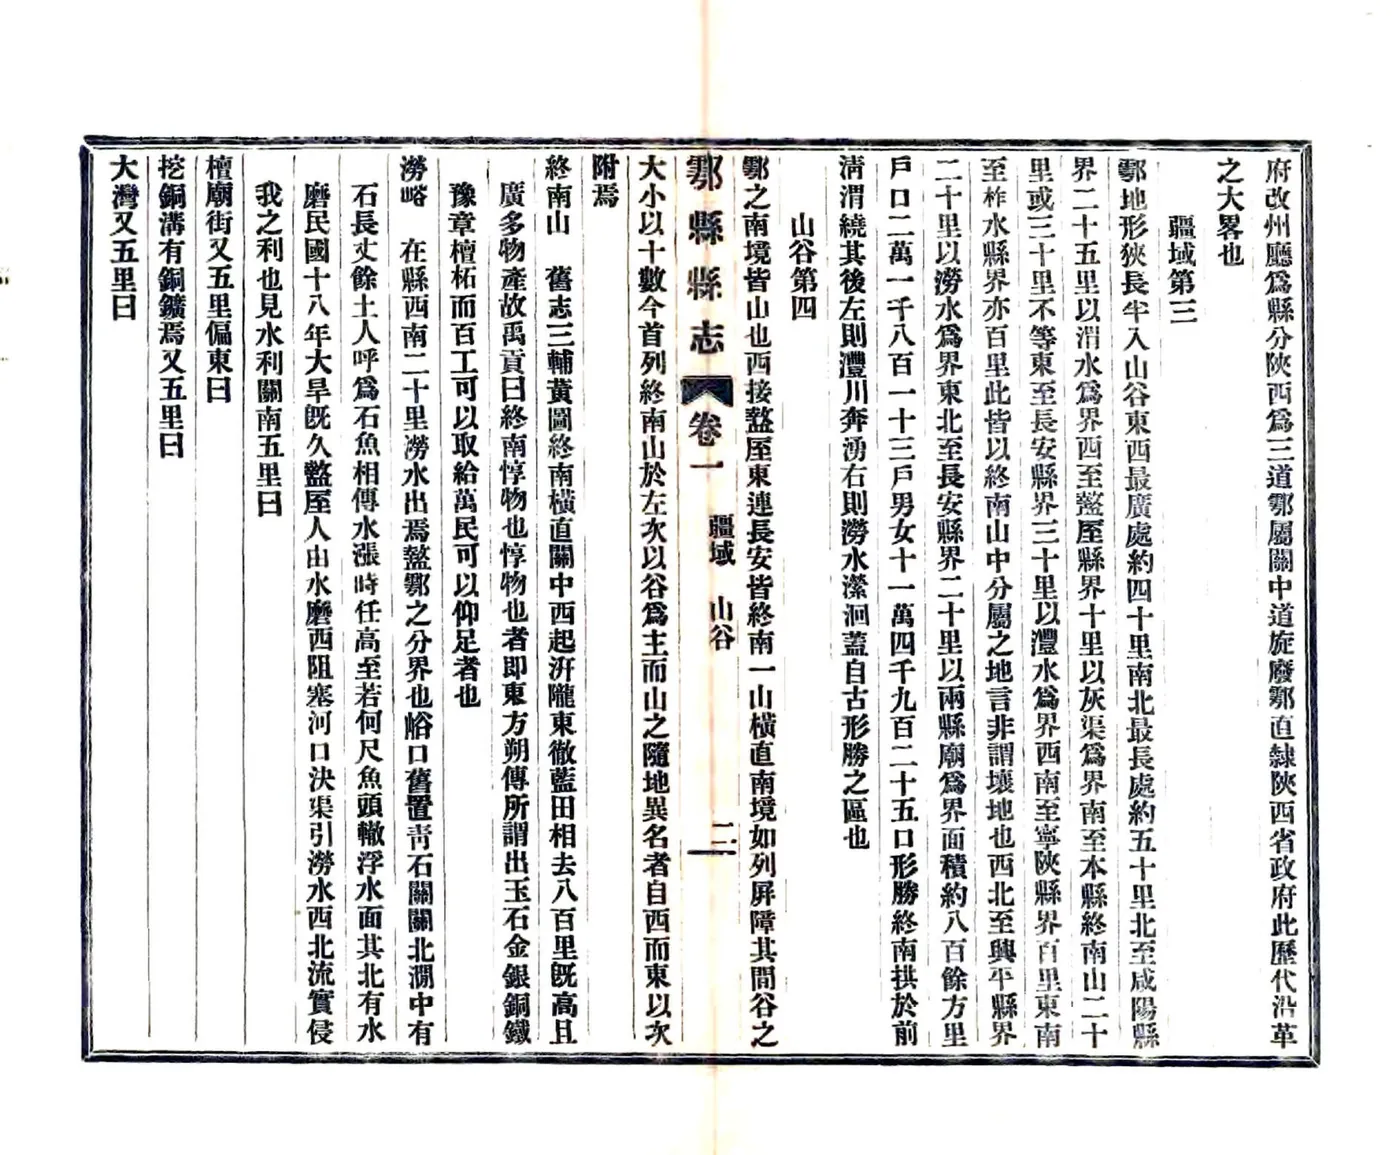 府改州廳爲縣分陝西爲三道鄠屬關中道旋廢鄠直隸陝西省政府此歷代沿革
之大畧也
疆域第三
鄠地形狹長半入山谷東西最廣處約四十里南北最長處約五十里北至咸陽縣
界二十五里以渭水爲界西至盩厔縣界十里以灰渠爲界南至本縣終南山二十
里或三十里不等東至長安縣界三十里以灃水爲界西南至寧陝縣界百里東南
至柞水縣界亦百里此皆以終南山中分屬之地言非謂壤地也西北至興平縣界
二十里以澇水爲界東北至長安縣界二十里以兩縣廟爲界面積約八百餘方里
戶口二萬一千八百一十三戶男女十一萬四千九百二十五口形勝終南拱於前
淸渭繞其後左則灃川奔湧右則澇水瀠洄蓋自古形勝之區也
山谷第四
鄠之南境皆山也西接盩厔東連長安皆終南一山橫直南境如列屛障其間谷之
鄠縣縣志 卷一 疆域 山谷 二
大小以十數今首列終南山於左次以谷爲主而山之隨地異名者自西而東以次
附焉
終南山 舊志三輔黃圖終南橫直關中西起汧隴東徹藍田相去八百里旣高且
廣多物產故禹貢曰終南惇物也惇物也者即東方朔傳所謂出玉石金銀銅鐵
豫章檀柘而百工可以取給萬民可以仰足者也
澇峪 在縣西南二十里澇水出焉盩鄠之分界也峪口舊置靑石關關北澗中有
石長丈餘土人呼爲石魚相傳水漲時任高至若何尺魚頭轍浮水面其北有水
磨民國十八年大旱旣久盩厔人由水磨西阻塞河口決渠引澇水西北流實侵
我之利也見水利關南五里曰
檀廟街又五里偏東曰
挖銅溝有銅鑛焉又五里曰
大灣又五里曰